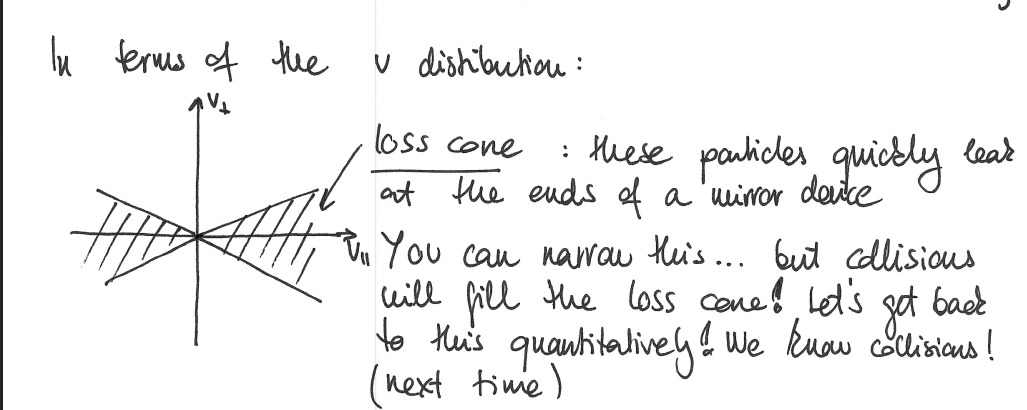 In terms of the v distribution:
V⊥
loss cone : these particles quickly leak
at the ends of a mirror device
V||
You can narrow this... but collisions
will fill the loss cone! Let's get back
to this quantitatively! We know collisions!
(next time)